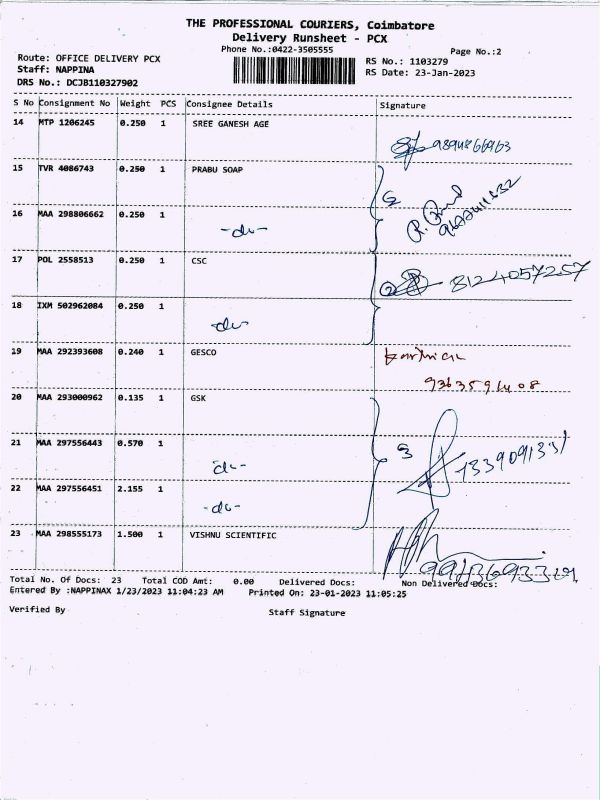 THE PROFESSIONAL COURIERS, Coimbatore
Delivery Runsheet - PCX
Phone No.:0422-3505555
Page No.:2
Route: OFFICE DELIVERY PCX
RS No.: 1103279
Staff: NAPPINA
RS Date: 23-Jan-2023
DRS No.: DCJB110327902
S No Consignment No Weight PCS Consignee Details Signature
14 MTP 1206245 0.250 1 SREE GANESH AGE
15 TVR 4086743 0.250 1 PRABU SOAP
16 MAA 298806662 0.250 1 -do-
17 POL 2558513 0.250 1 CSC
8124057257
18 IXM 502962084 0.250 1 -do-
19 MAA 292393608 0.240 1 GESCO
20 MAA 293000962 0.135 1 GSK
21 MAA 297556443 0.570 1 -do-
3
22 MAA 297556451 2.155 1 -do-
23 MAA 298555173 1.500 1 VISHNU SCIENTIFIC
Total No. Of Docs: 23 Total COD Amt: 0.00 Delivered Docs: Non Delivered Docs:
Entered By :NAPPINAX 1/23/2023 11:04:23 AM Printed On: 23-01-2023 11:05:25
Verified By Staff Signature